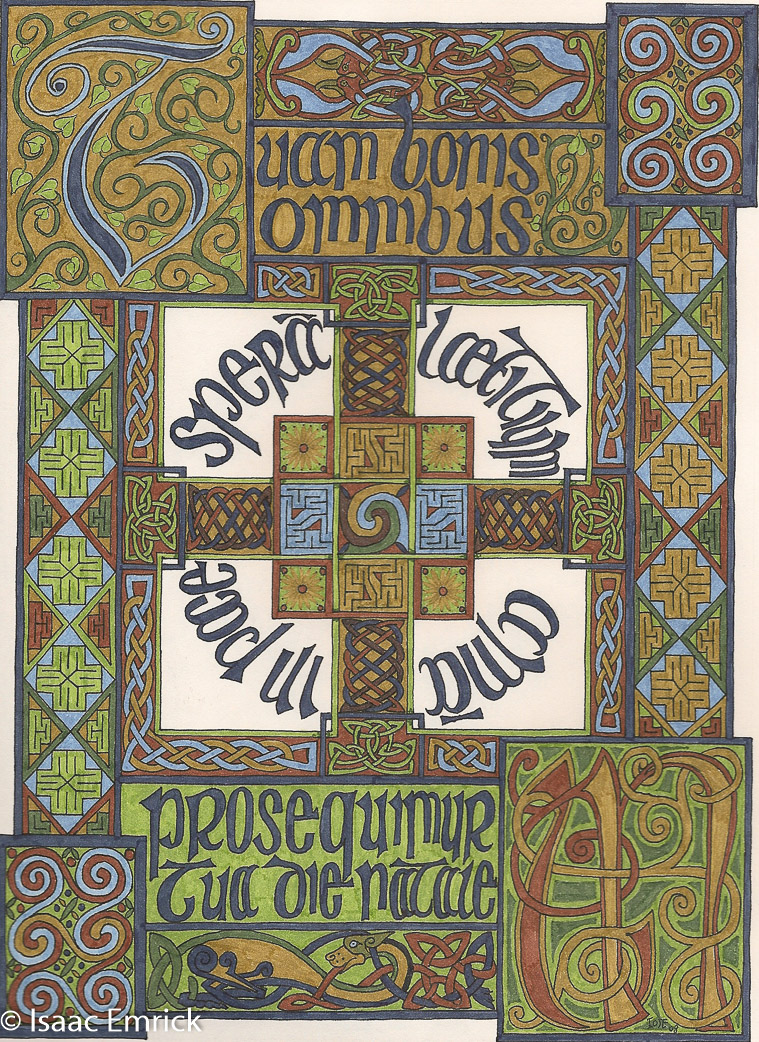 Tuam bonis
omnibus
sperā
lætitiam
in pace
prosequimur
tua die natale
© Isaac Emrick